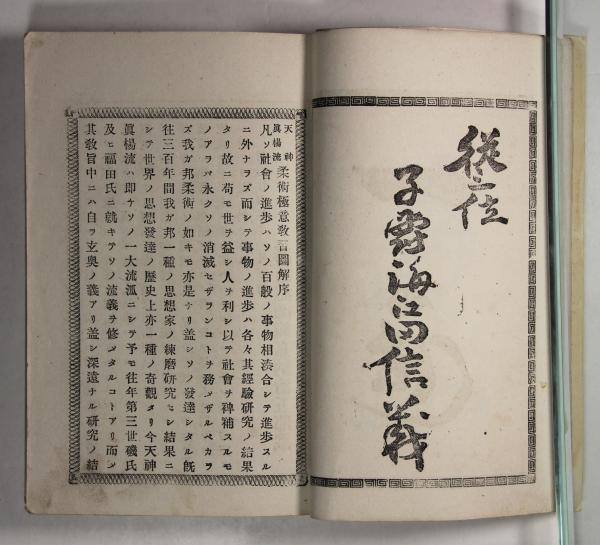 從三位
子爵海江田信義
天神
眞楊流柔術極意敎旨圖解序
凡ソ社會ノ進步ハソノ百般ノ事物相湊合シテ進步スル
ニ外ナラズ而シテ事物ノ進步ハ各々其經驗研究ノ結果
タリ故ニ苟モ世ヲ益シ人ヲ利シ以テ社會ヲ裨補スルモ
ノアラバ永クソノ消滅セザランコトヲ務メザルベカラ
ズ我ガ邦柔術ノ如キモ亦是ナリ盖シソノ發達シタル旣
往三百年間我ガ邦一種ノ思想家ノ練磨硏究セシ結果ニ
シテ世界ノ思想發達ノ歷史上亦一種ノ奇觀タリ今天神
眞楊流ハ卽チソノ一大流派ニシテ予モ往年第三世磯氏
及ヒ福田氏ニ就キテソノ流義ヲ修メタルコトアリ而シ
其敎旨中ニハ自ラ玄奥ノ義アリ盖シ深遠ナル硏究ノ結